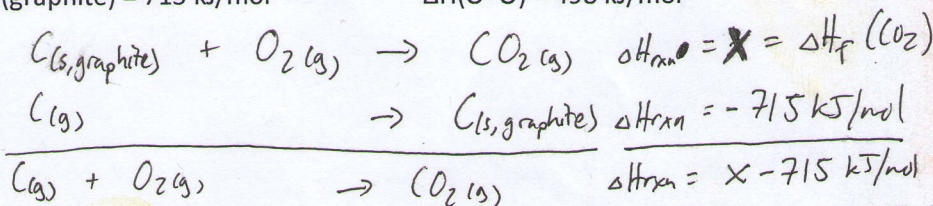 (graphite) = 715 kJ/mol ΔH(O=O) = 498 kJ/mol
C(s, graphite) + O2(g) → CO2(g) ΔHrxn = X = ΔHf (CO2)
C(g) → C(s, graphite) ΔHrxn = -715 kJ/mol
C(g) + O2(g) → CO2(g) ΔHrxn = X - 715 kJ/mol